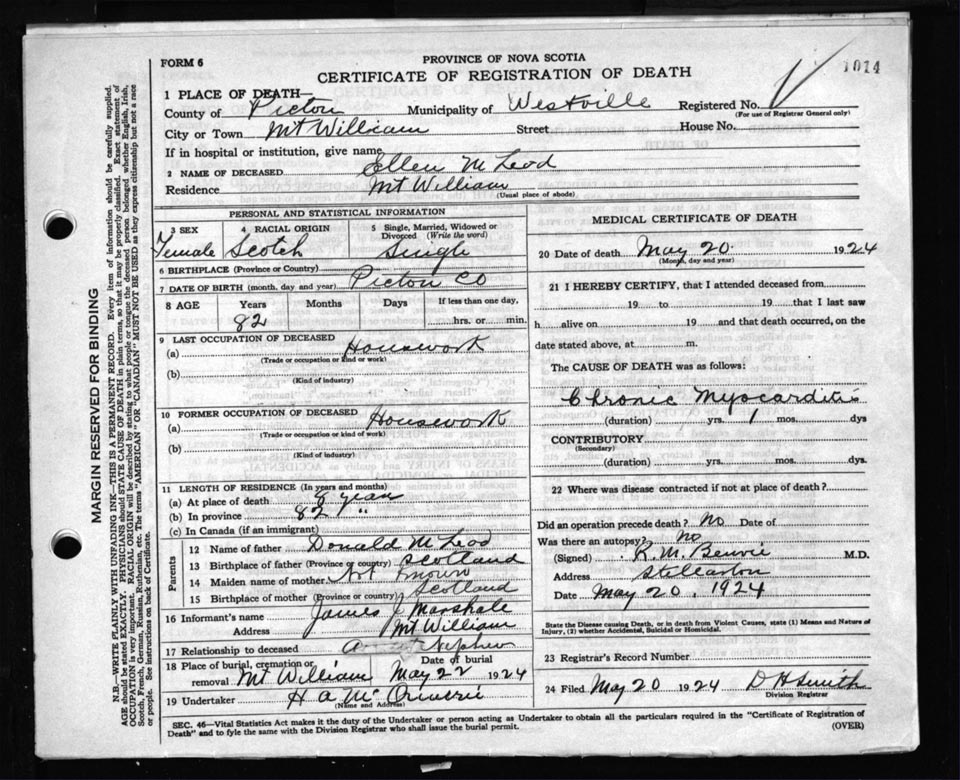 FORM 6
PROVINCE OF NOVA SCOTIA
CERTIFICATE OF REGISTRATION OF DEATH
1014
1 PLACE OF DEATH—
County of Pictou Municipality of Westville Registered No.
(For use of Registrar General only)
City or Town Mt William Street House No.
If in hospital or institution, give name
2 NAME OF DECEASED Ellen McLeod
Residence Mt William
(Usual place of abode)
PERSONAL AND STATISTICAL INFORMATION
3 SEX 4 RACIAL ORIGIN 5 Single, Married, Widowed or Divorced (Write the word)
Female Scotch Single
6 BIRTHPLACE (Province or Country)
7 DATE OF BIRTH (month, day and year) Pictou Co
8 AGE Years Months Days If less than one day,
82 hrs. or min.
9 LAST OCCUPATION OF DECEASED
(a) Housework
(Trade or occupation or kind or work)
(b)
(Kind of industry)
10 FORMER OCCUPATION OF DECEASED
(a) Housework
(Trade or occupation or kind of work)
(b)
(Kind of industry)
11 LENGTH OF RESIDENCE (In years and months)
(a) At place of death 8 years
(b) In province 82 "
(c) In Canada (if an immigrant)
Parents
12 Name of father Donald McLeod
13 Birthplace of father (Province or country) Scotland
14 Maiden name of mother Not known
15 Birthplace of mother (Province or country) Scotland
16 Informant's name James J Marshall
Address Mt William
17 Relationship to deceased Nephew
18 Place of burial, cremation or removal Mt William Date of burial May 22 1924
19 Undertaker H A
(Name and Address)
MEDICAL CERTIFICATE OF DEATH
20 Date of death May 20 1924
(Month, day and year)
21 I HEREBY CERTIFY, that I attended deceased from
19 to 19 that I last saw
h alive on 19 and that death occurred, on the
date stated above, at m.
The CAUSE OF DEATH was as follows:
Chronic Myocarditis
(duration) yrs. 1 mos. dys
CONTRIBUTORY
(Secondary)
(duration) yrs. mos. dys.
22 Where was disease contracted if not at place of death?
Did an operation precede death? No Date of
Was there an autopsy? No
(Signed) M.D.
Address Stellarton
Date May 20, 1924
State the Disease causing Death, or in death from Violent Causes, state (1) Means and Nature of
Injury, (2) whether Accidental, Suicidal or Homicidal.
23 Registrar's Record Number
24 Filed May 20 1924 D H Smith
Division Registrar
SEC. 46—Vital Statistics Act makes it the duty of the Undertaker or person acting as Undertaker to obtain all the particulars required in the "Certificate of Registration of
Death" and to fyle the same with the Division Registrar who shall issue the burial permit.
(OVER)
MARGIN RESERVED FOR BINDING
N.B.—WRITE PLAINLY WITH UNFADING INK—THIS IS A PERMANENT RECORD. Every item of information should be carefully supplied.
AGE should be stated EXACTLY. PHYSICIANS should STATE CAUSE OF DEATH in plain terms, so that it may be properly classified. Exact statement of
OCCUPATION is very important. RACIAL ORIGIN will be described by stating to what people or tongue the deceased person belonged whether English, Irish,
Scotch, French, German, Russian, Ruthenian, etc. The terms "AMERICAN" or "CANADIAN" MUST NOT BE USED as they express citizenship but not a race
or people. See instructions on back of Certificate.